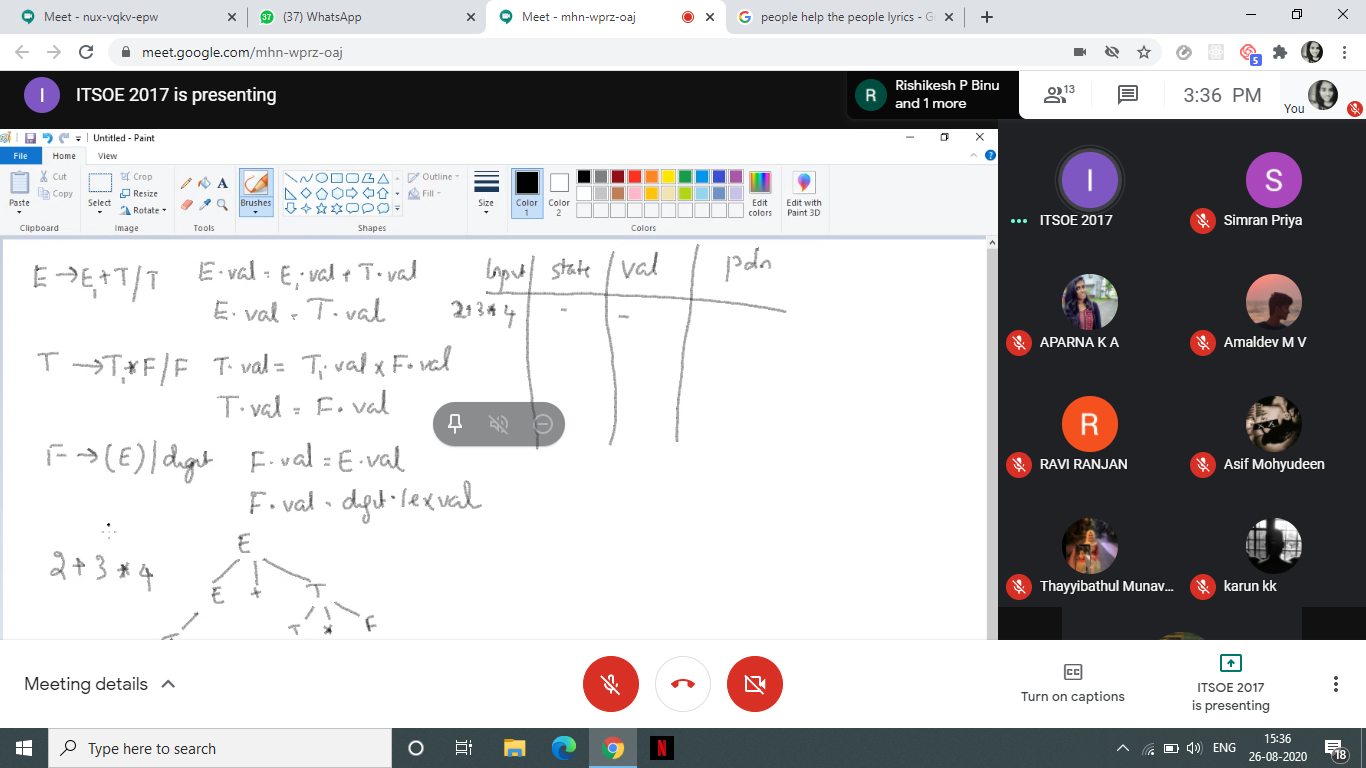 Meet - nux-vqkv-epw
(37) WhatsApp
Meet - mhn-wprz-oaj
people help the people lyrics - G
meet.google.com/mhn-wprz-oaj
5
I
ITSOE 2017 is presenting
R
Rishikesh P Binu
and 1 more
13
3:36 PM
You
Untitled - Paint
File
Home
View
Paste
Cut
Copy
Clipboard
Select
Crop
Resize
Rotate
Image
A
Tools
Brushes
Outline
Fill
Shapes
Size
Color
1
Color
2
Edit
colors
Edit with
Paint 3D
Colors
E → E₁ + T / T
E.val = E₁.val + T.val
E.val = T.val
T → T₁ * F / F
T.val = T₁.val x F.val
T.val = F.val
F → (E) / digit
F.val = E.val
F.val = digit.lexval
2 + 3 * 4
E
E + T
T
T * F
Input state val pdn
2+3*4 - -
I
ITSOE 2017
S
Simran Priya
APARNA K A
Amaldev M V
R
RAVI RANJAN
Asif Mohyudeen
Thayyibathul Munav...
karun kk
Meeting details
CC
Turn on captions
ITSOE 2017
is presenting
Type here to search
N
ENG
15:36
26-08-2020
18